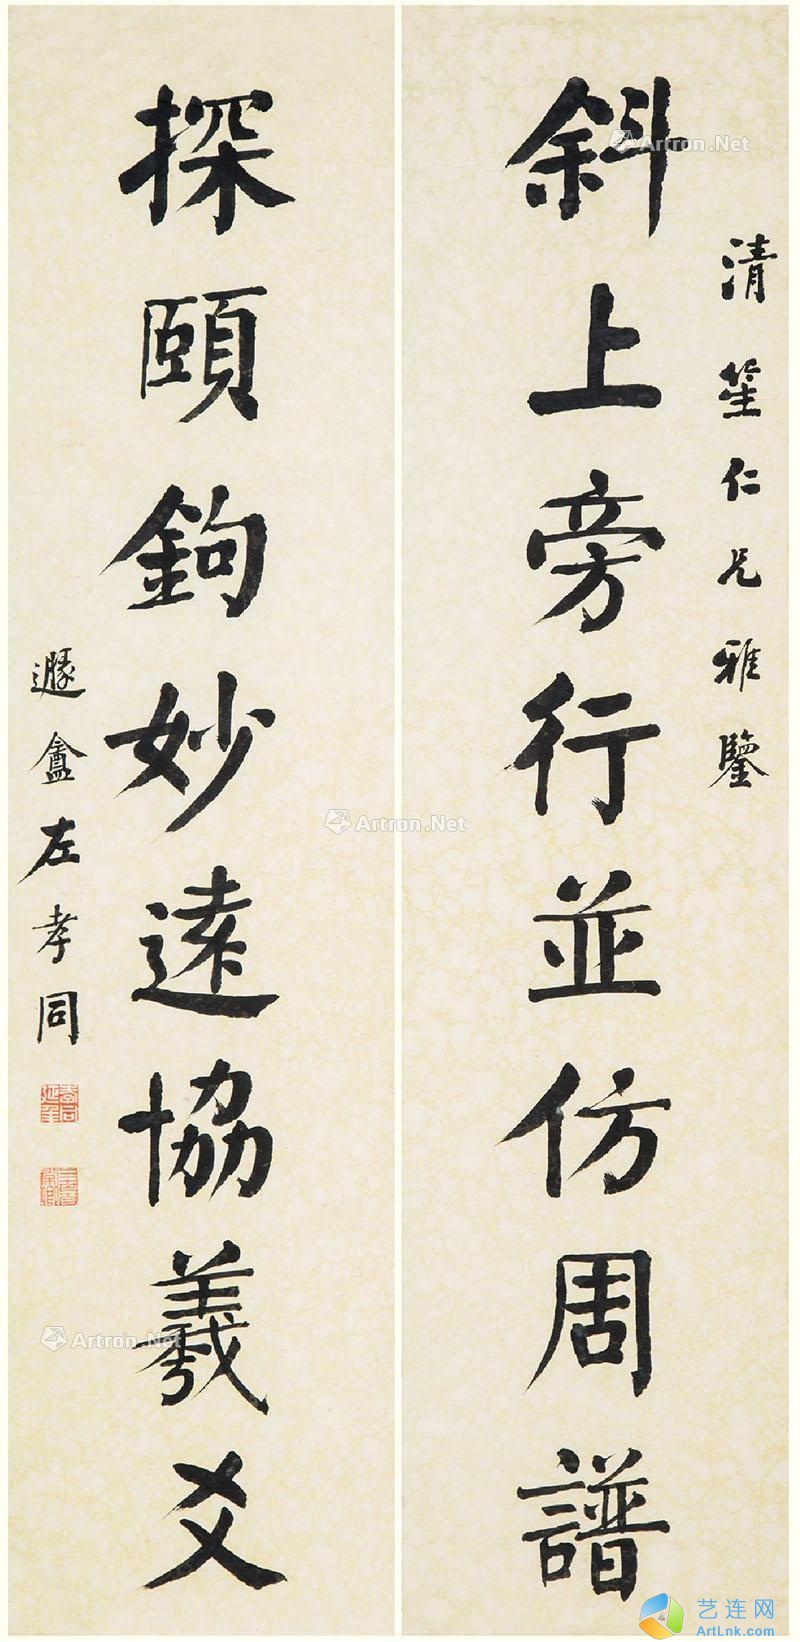 清笙仁兄雅鑒
斜上旁行並仿周譜
探頤鉤妙遠協羲爻
遯盦左孝同
Artron.Net
Artron.Net
Artron.Net
艺连网
ArtLnk.com